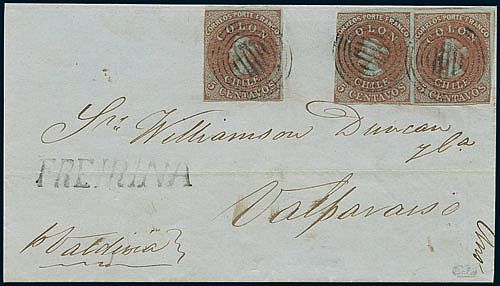 CORREOS PORTE FRANCO
COLON
CHILE
5 CENTAVOS
CORREOS PORTE FRANCO
COLON
CHILE
5 CENTAVOS
CORREOS PORTE FRANCO
COLON
CHILE
5 CENTAVOS
Williamson Duncan
y Ca
FREIRINA
Valparaiso
p Valdivia